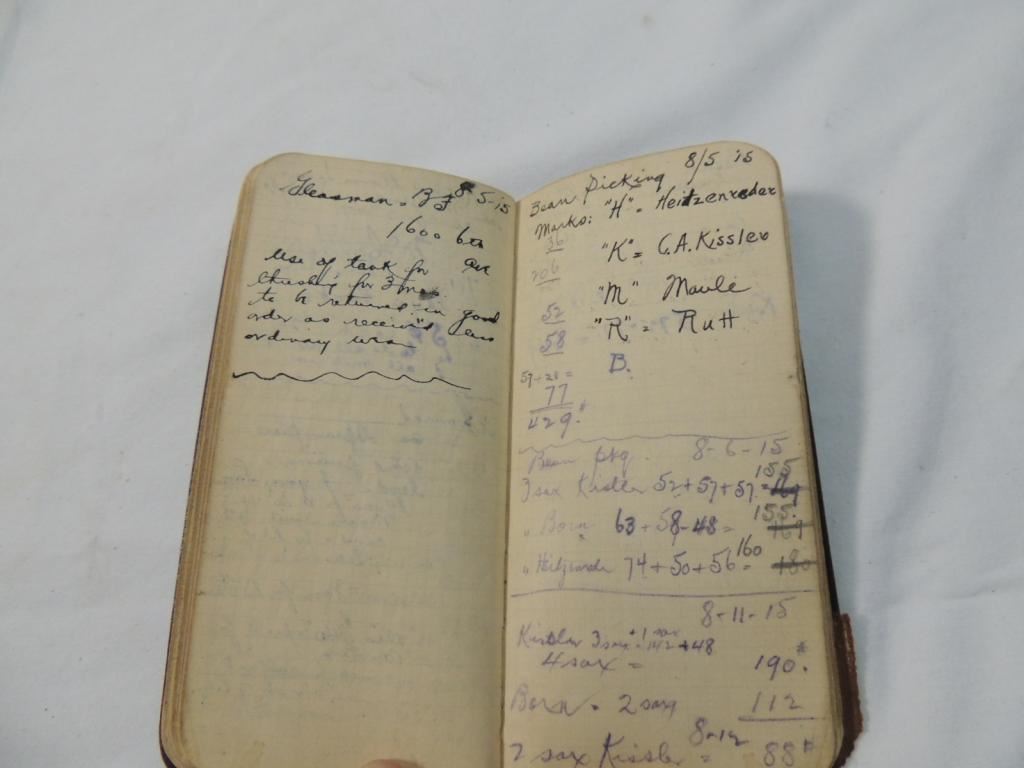 Gleasman. B 8-5-15
1600
use of tank for
thrashing for 3 mos.
to be returned in good
order as received
ordinary wear
8/5 15
Bean Picking
Marks: "H" = Heitzenreder
36
"K" = C.A. Kissler
206
"M" Maule
52
"R" = Rutt
58
B.
57+20=
77
429.#
Bean pkg. 8-6-15
3 sax Kissler 52+57+57 = 155
" Born 63+58-48= 155.
" 74+50+56 = 160 180
8-11-15
Kissler 3 sax + 1 sax 142+48
4 sax = 190.#
Born. 2 sax 112
8-12
2 sax Kissler = 88#